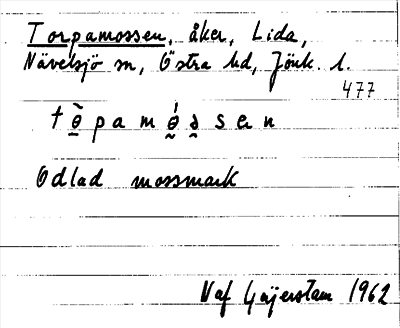 Torpamossen, åker, Lida,
Nävelsjö sn, Östra hd, Jönk. l.
477
Odlad mossmark
Vaf Gejerstam 1962